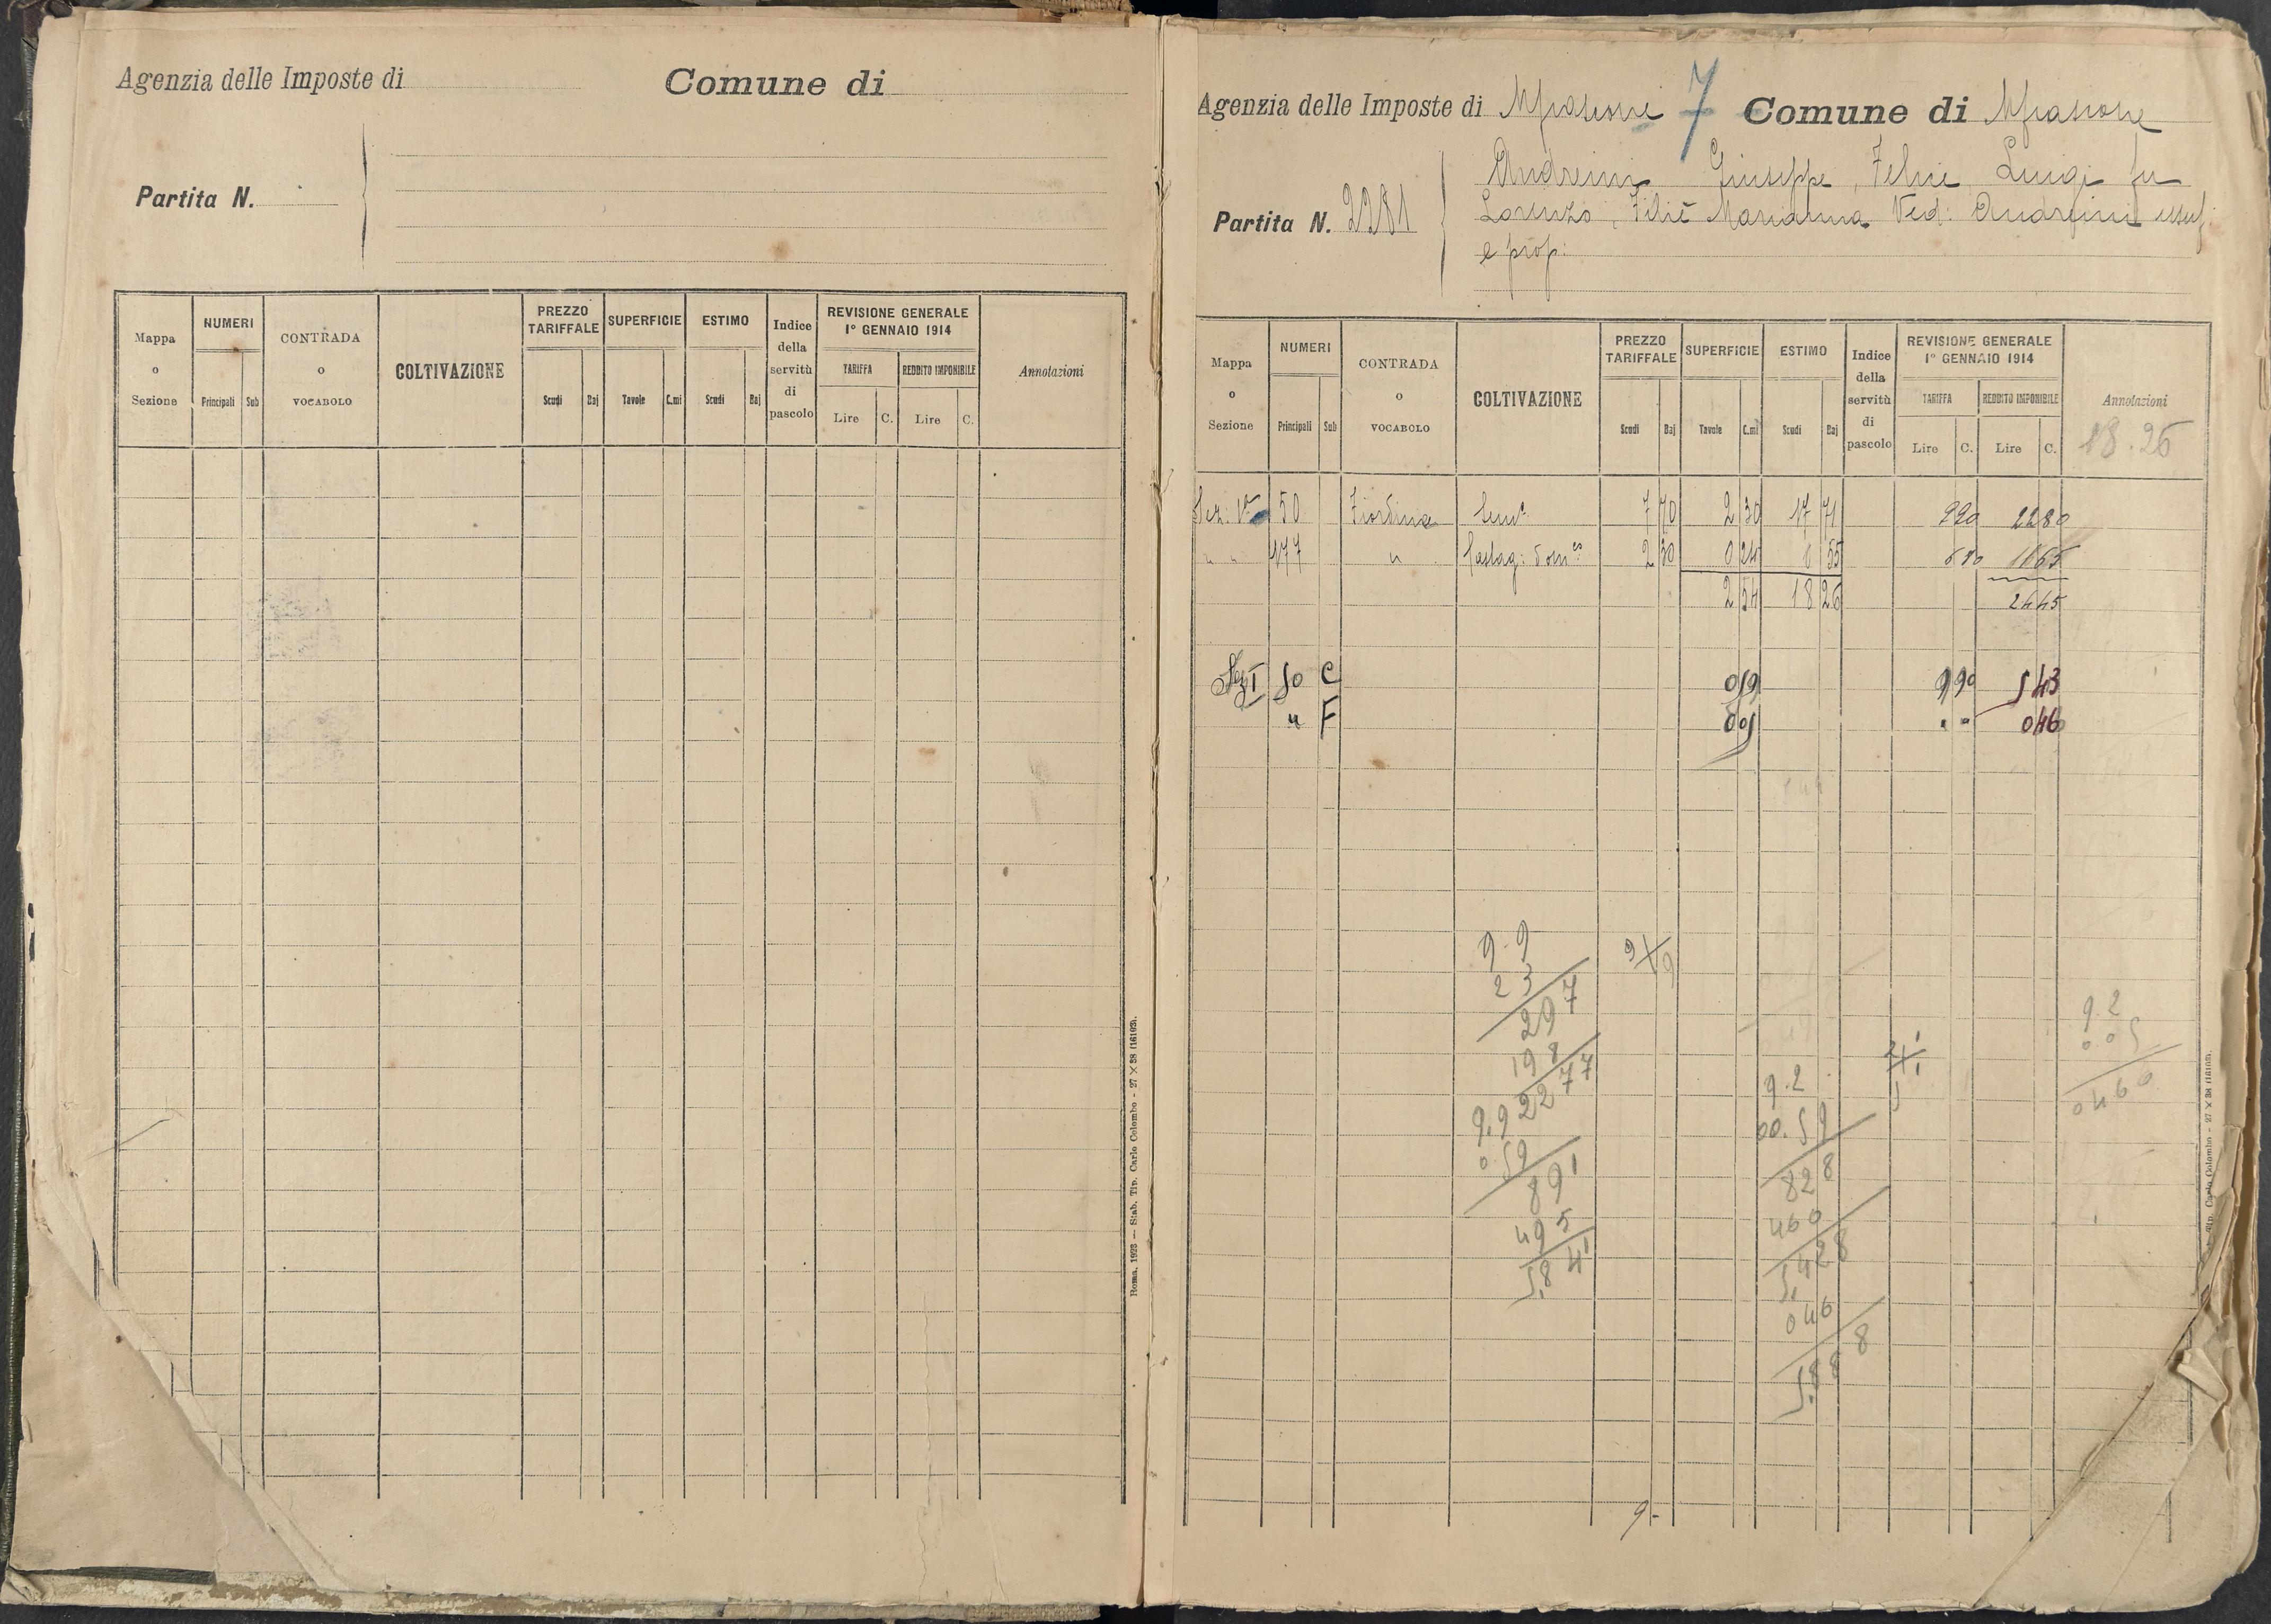 Agenzia delle Imposte di Comune di
Partita N.
Mappa o Sezione NUMERI Principali Sub CONTRADA o VOCABOLO COLTIVAZIONE PREZZO TARIFFALE Scudi Baj SUPERFICIE Tavole C.mi ESTIMO Scudi Baj Indice della servitù di pascolo REVISIONE GENERALE 1° GENNAIO 1914 TARIFFA Lire C. REDDITO IMPONIBILE Lire C. Annotazioni
Roma, 1923 — Stab. Tip. Carlo Colombo - 27 X 38 (16103).
7
Agenzia delle Imposte di Comune di
Partita N. 2281
Andreini Giuseppe, Felice Luigi fu
Lorenzo, Marianna Ved: Andreini usuf:
e prop:
Mappa o Sezione NUMERI Principali Sub CONTRADA o VOCABOLO COLTIVAZIONE PREZZO TARIFFALE Scudi Baj SUPERFICIE Tavole C.mi ESTIMO Scudi Baj Indice della servitù di pascolo REVISIONE GENERALE 1° GENNAIO 1914 TARIFFA Lire C. REDDITO IMPONIBILE Lire C. Annotazioni
18.26
Sez. 1a 50 Fiordina Sem 7 70 2 30 17 71 990 2280
" " 177 " Castag: dom 2 30 0 24 0 55 1165
2 54 18 26 2445
Sez I 50 C 059 990 543
" F 005 " " 046
9.9
23
297
198
2277
9 9
9.9
0.59
891
495
5.841
9.2
00.59
828
460
5.428
046
5.888
9.2
0.05
0460
9-
Tip. Carlo Colombo - 27 X 38 (16103).